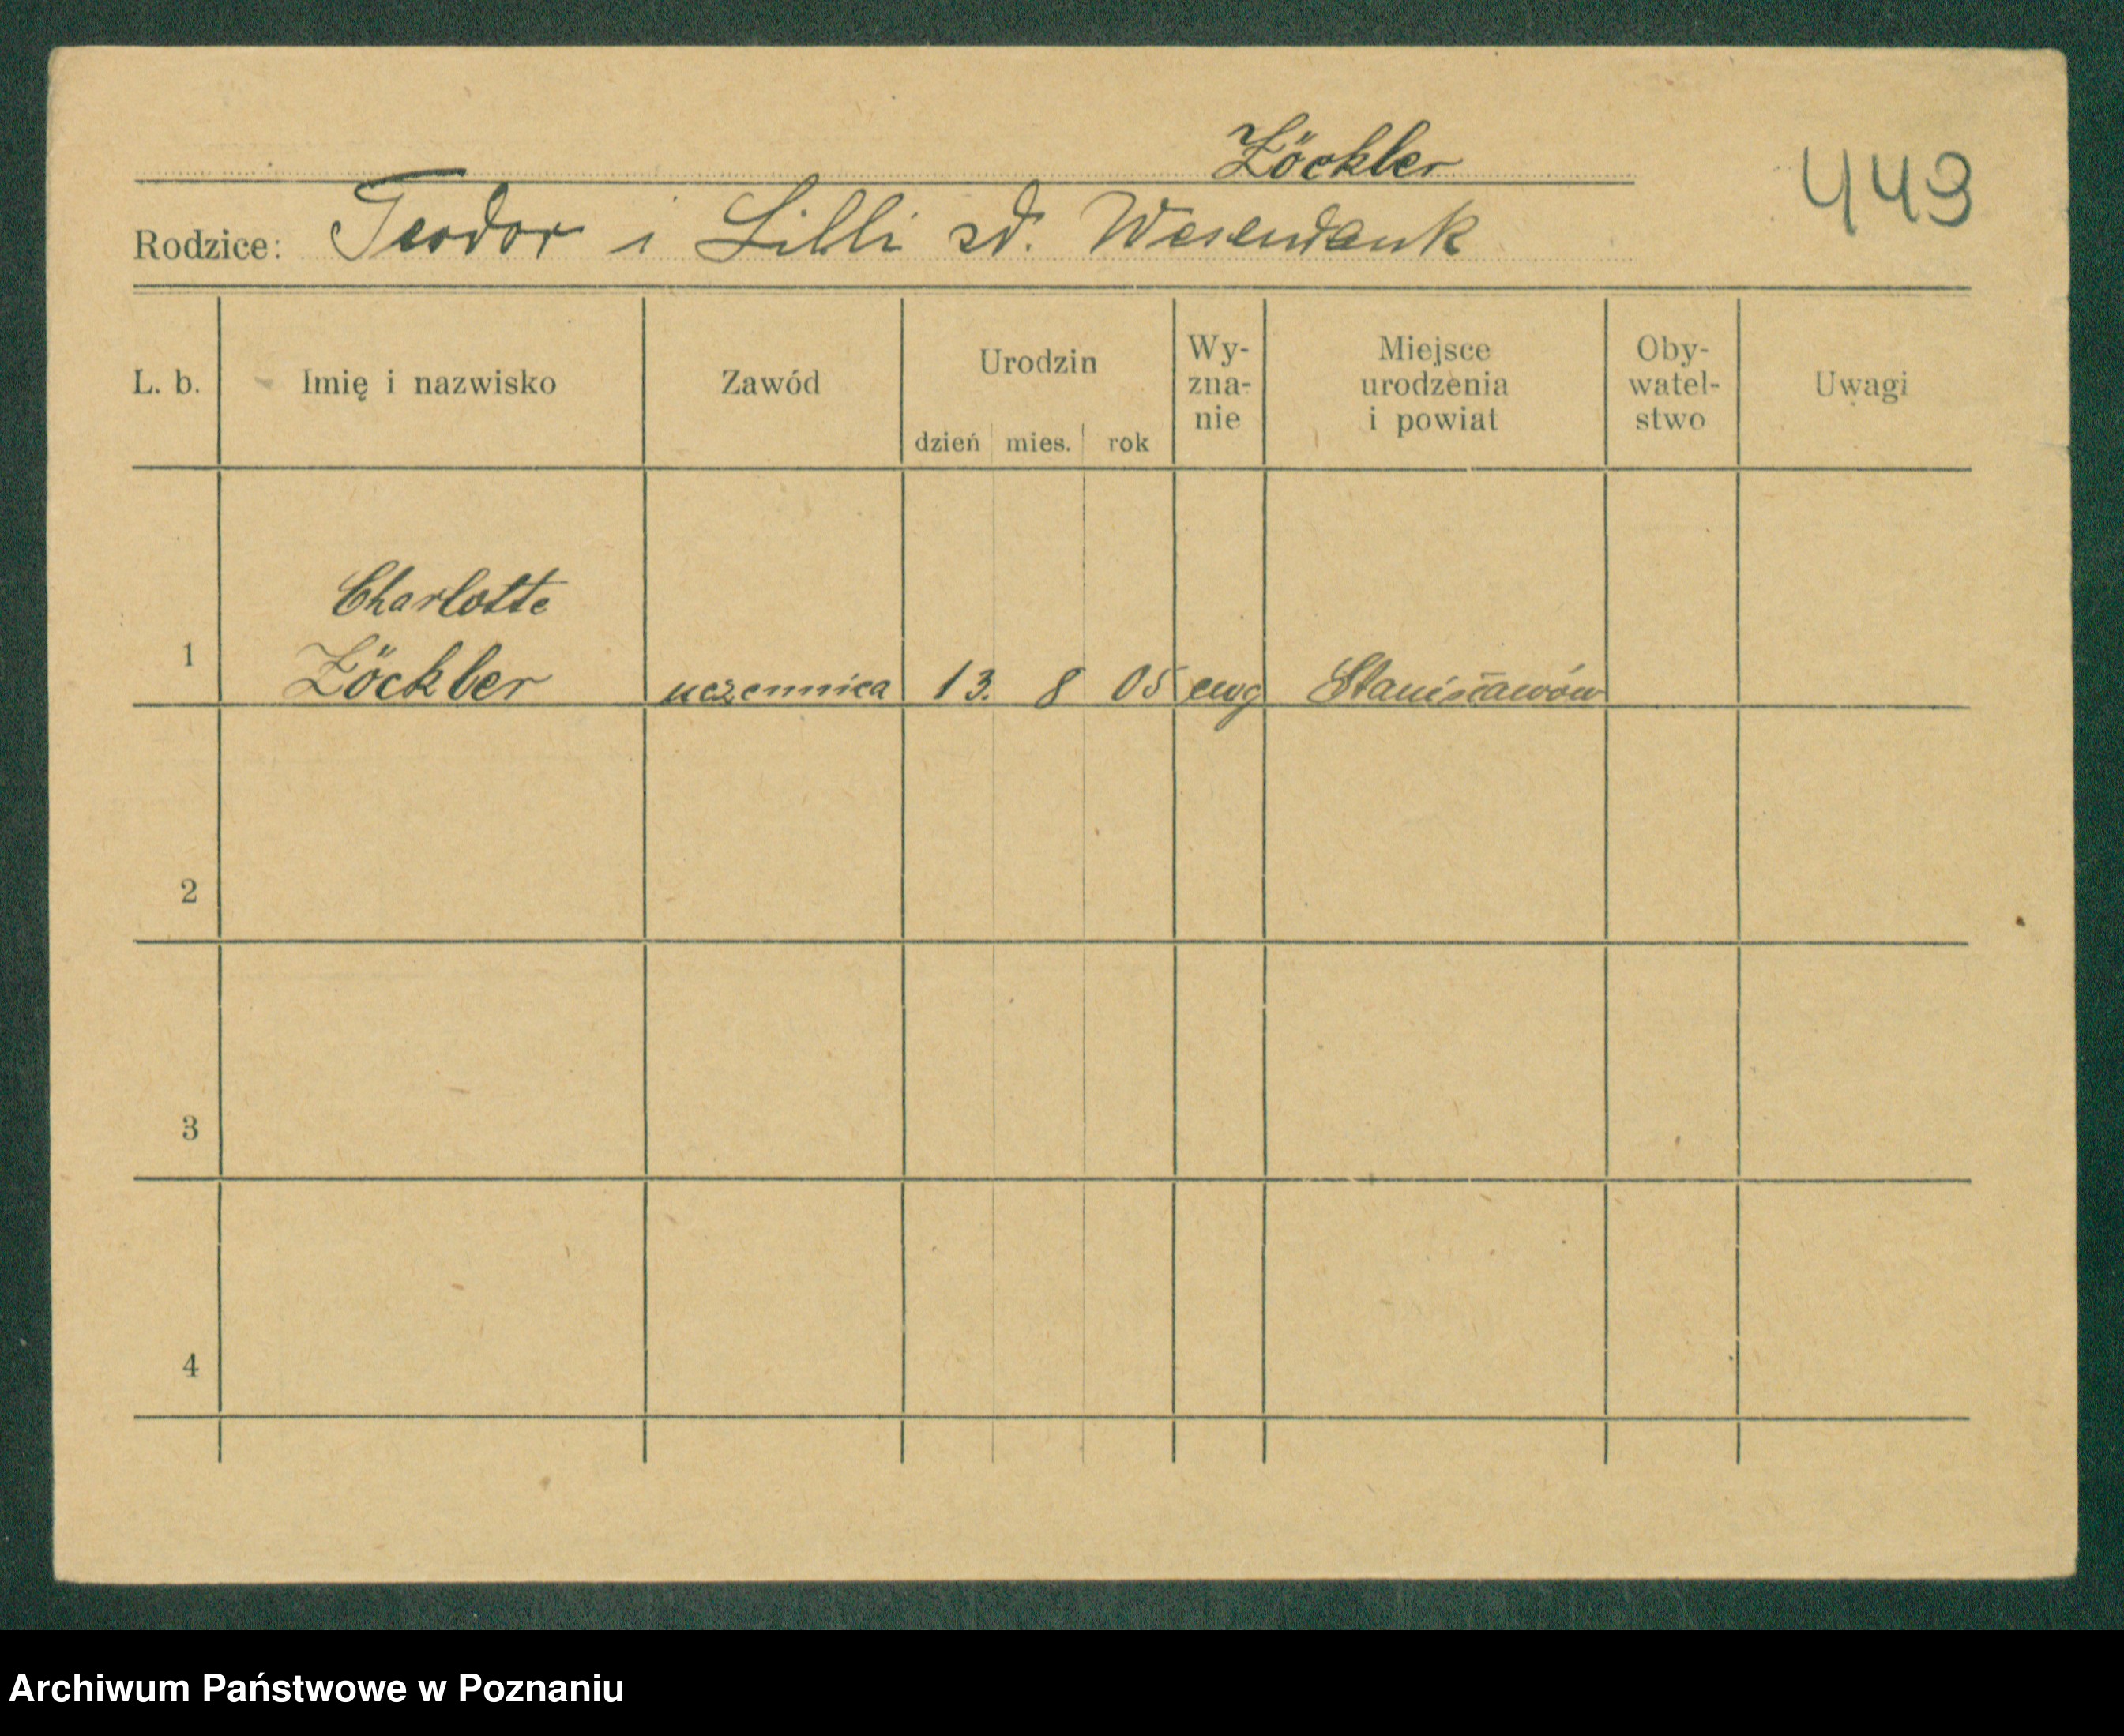 Zöckler
449
Rodzice: Teodor i Lilli zd. Wesendonk
L. b. Imię i nazwisko Zawód Urodzin dzień mies. rok Wy-zna-nie Miejsce urodzenia i powiat Oby-watel-stwo Uwagi
Charlotte
1 Zöckler uczennica 13. 8 05 ewg Stanisławów
2
3
4
Archiwum Państwowe w Poznaniu